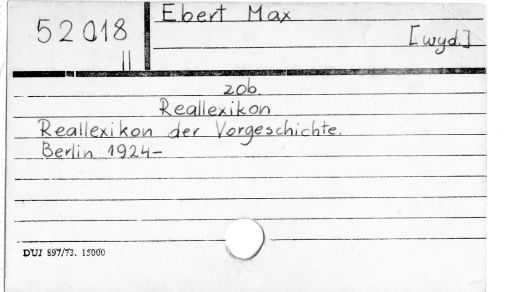 52018
II
Ebert Max
[wyd.]
zob.
Reallexikon
Reallexikon der Vorgeschichte.
Berlin 1924-
DUJ 897/73. 15000